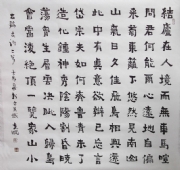 結廬在人境而無車馬喧
問君何能爾心遠地自偏
采菊東籬下悠然見南山
山氣日夕佳飛鳥相與還
此中有真意欲辨已忘言
岱宗夫如何齊魯青未了
造化鍾神秀陰陽割昏曉
蕩胸生層雲決眥入歸鳥
會當凌絕頂一覽眾山小